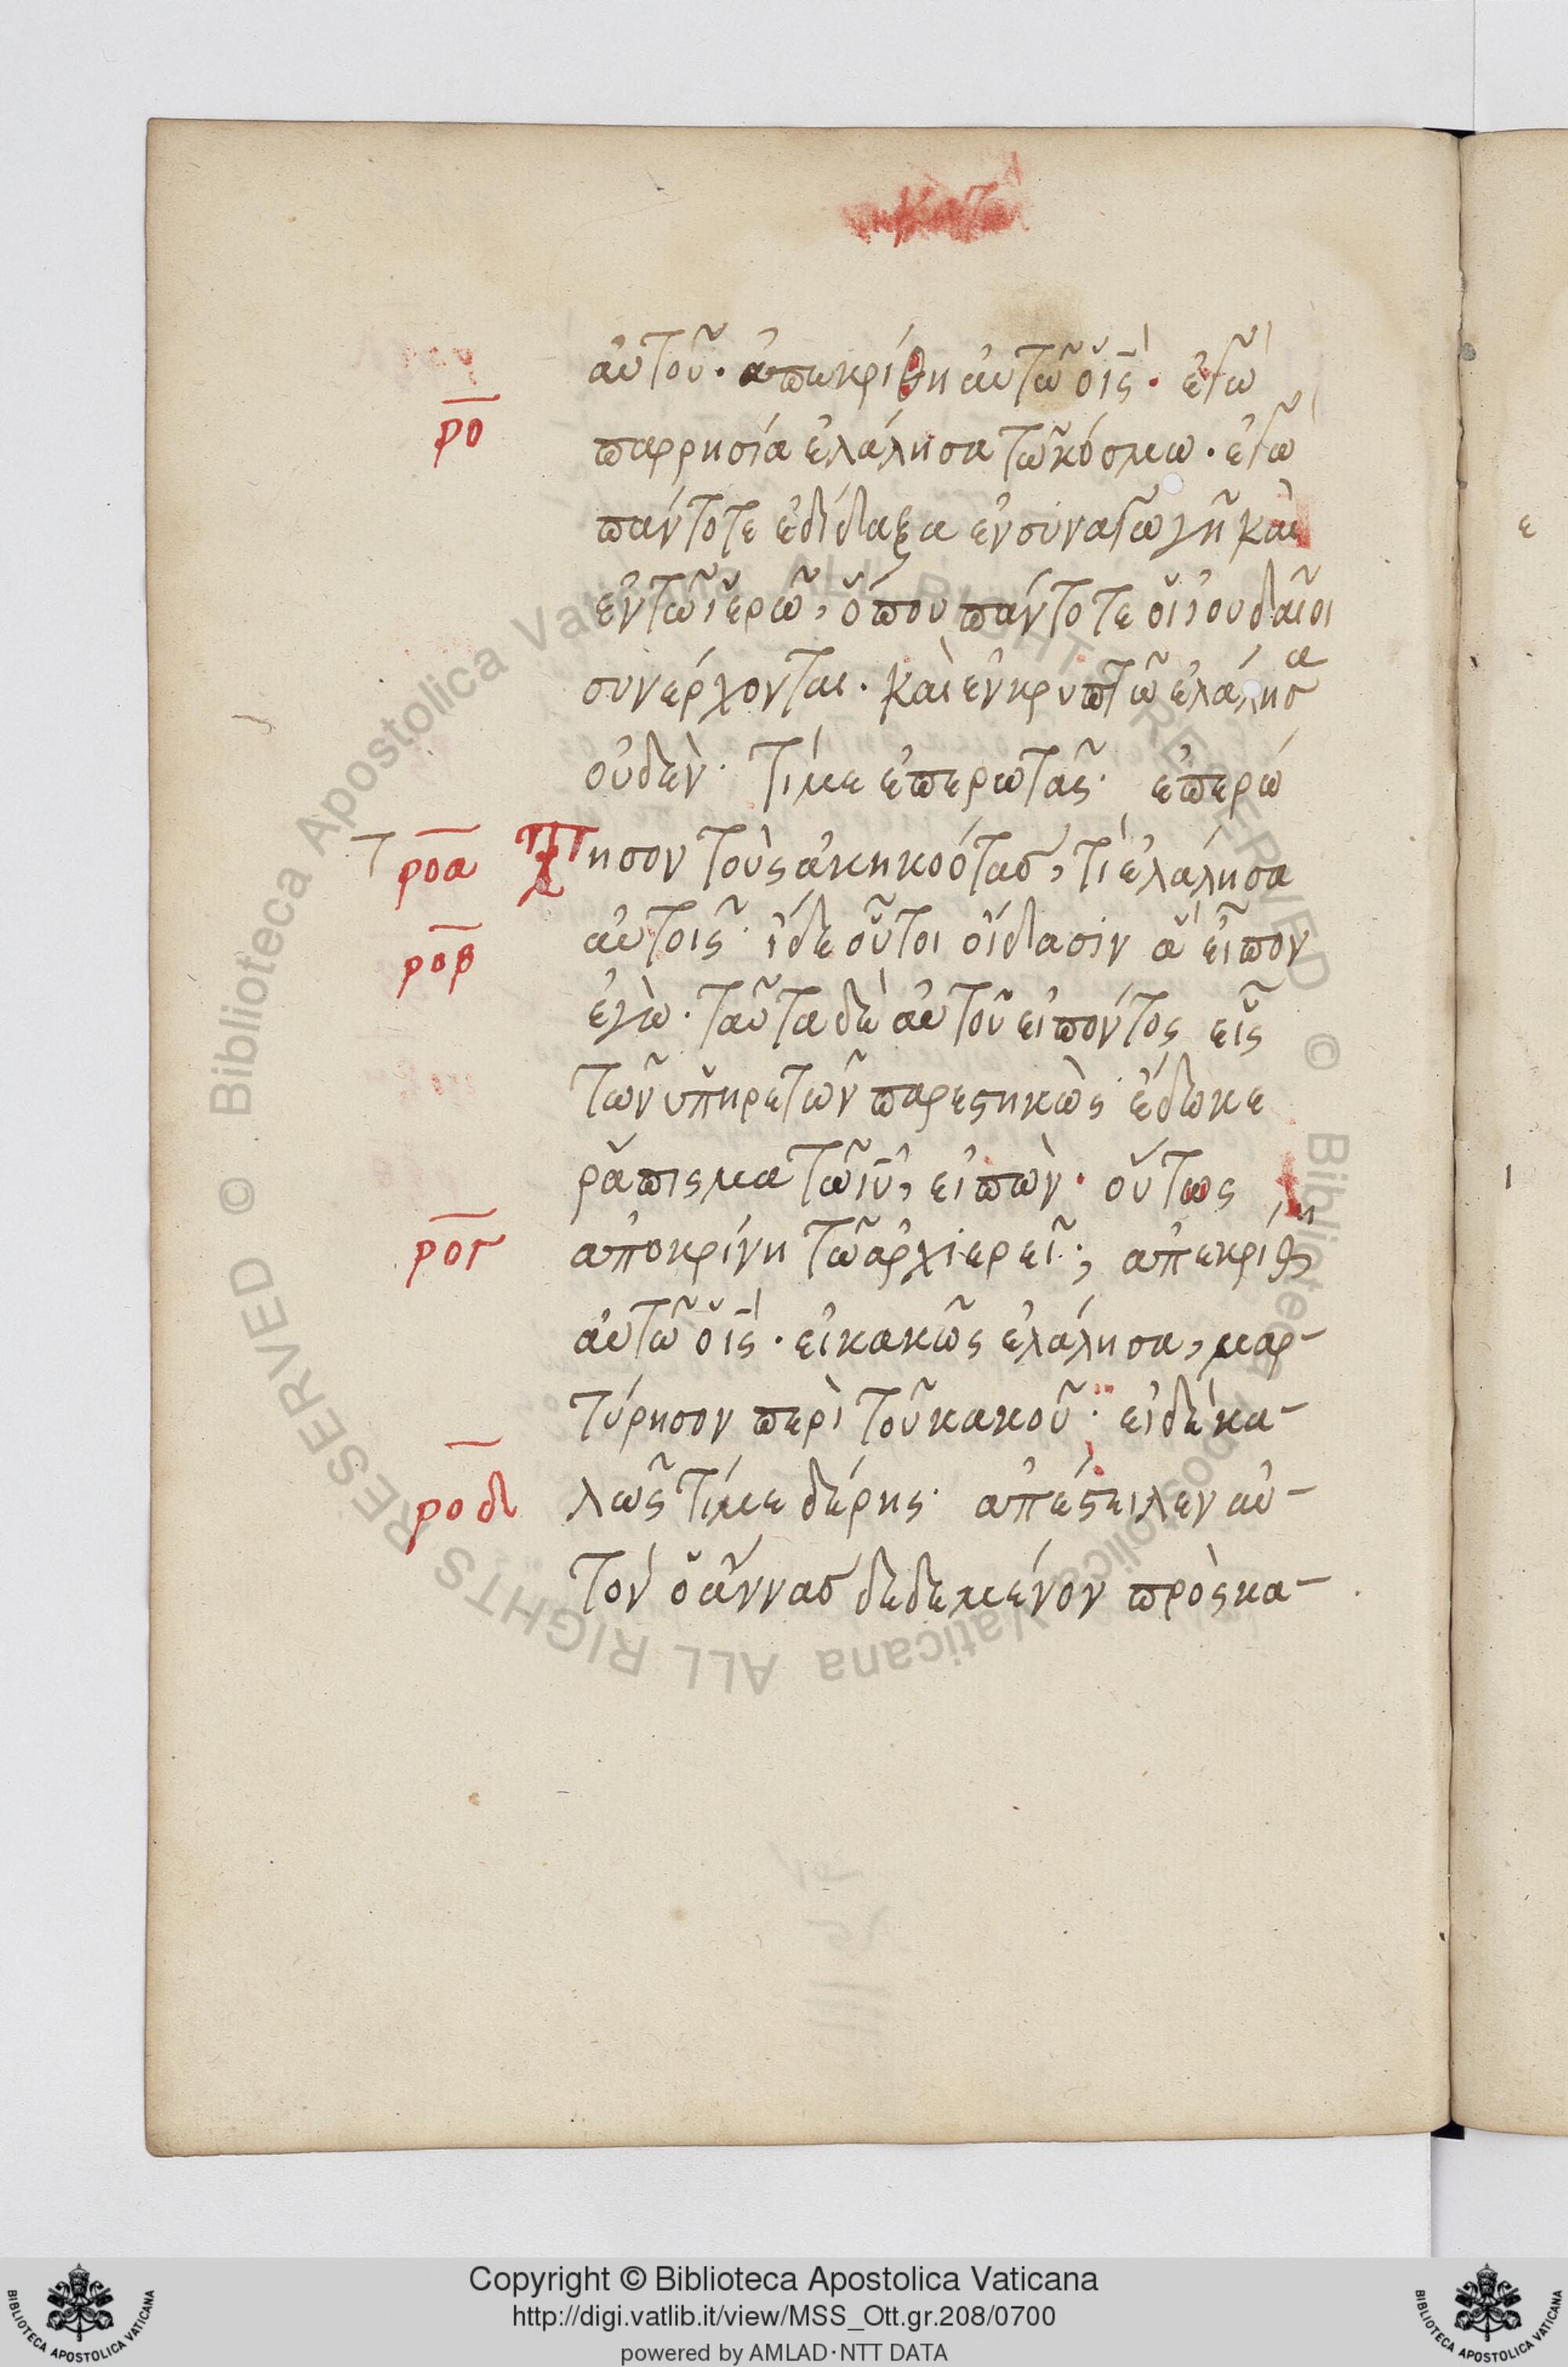 αὐτοῦ· ἀπεκρίθη αὐτῶ ὁ ις· ἐγὼ
ρο
παρρησία ἐλάλησα τῶ κόσμω· ἐγὼ
πάντοτε ἐδίδαξα ἐν συναγωγῆ καὶ
ἐν τῶ ἱερῶ, ὅπου πάντοτε οἱ ἰουδαῖοι
συνέρχονται· καὶ ἐν κρυπτῶ ἐλάλησα
οὐδὲν· τί με ἐπερωτᾶς· ἐπερώ
ροα τησον τοὺς ἀκηκοότασ, τί ἐλάλησα
ροβ αὐτοῖς· ἴδε οὗτοι οἴδασιν ἃ εἶπον
ἐγὼ· ταῦτα δὲ αὐτοῦ εἰπόντος εἷς
τῶν ὑπηρετῶν παρεστηκὼς ἔδωκε
ῥάπισμα τῶ ιυ, εἰπὼν· οὕτως
ρογ ἀποκρίνη τῶ ἀρχιερεῖ; ἀπεκρίθη
αὐτῶ ὁ ις· εἰ κακῶς ἐλάλησα, μαρ-
τύρησον περὶ τοῦ κακοῦ· εἰ δὲ κα-
ροδ λῶς τί με δέρης· ἀπέστειλεν αὐ-
τὸν ὁ ἄννασ δεδεμένον πρὸς κα-
© Biblioteca Apostolica Vaticana ALL RIGHTS RESERVED © Biblioteca Apostolica Vaticana ALL RIGHTS RESERVED
Copyright © Biblioteca Apostolica Vaticana
http://digi.vatlib.it/view/MSS_Ott.gr.208/0700
powered by AMLAD·NTT DATA
BIBLIOTECA APOSTOLICA VATICANA
BIBLIOTECA APOSTOLICA VATICANA